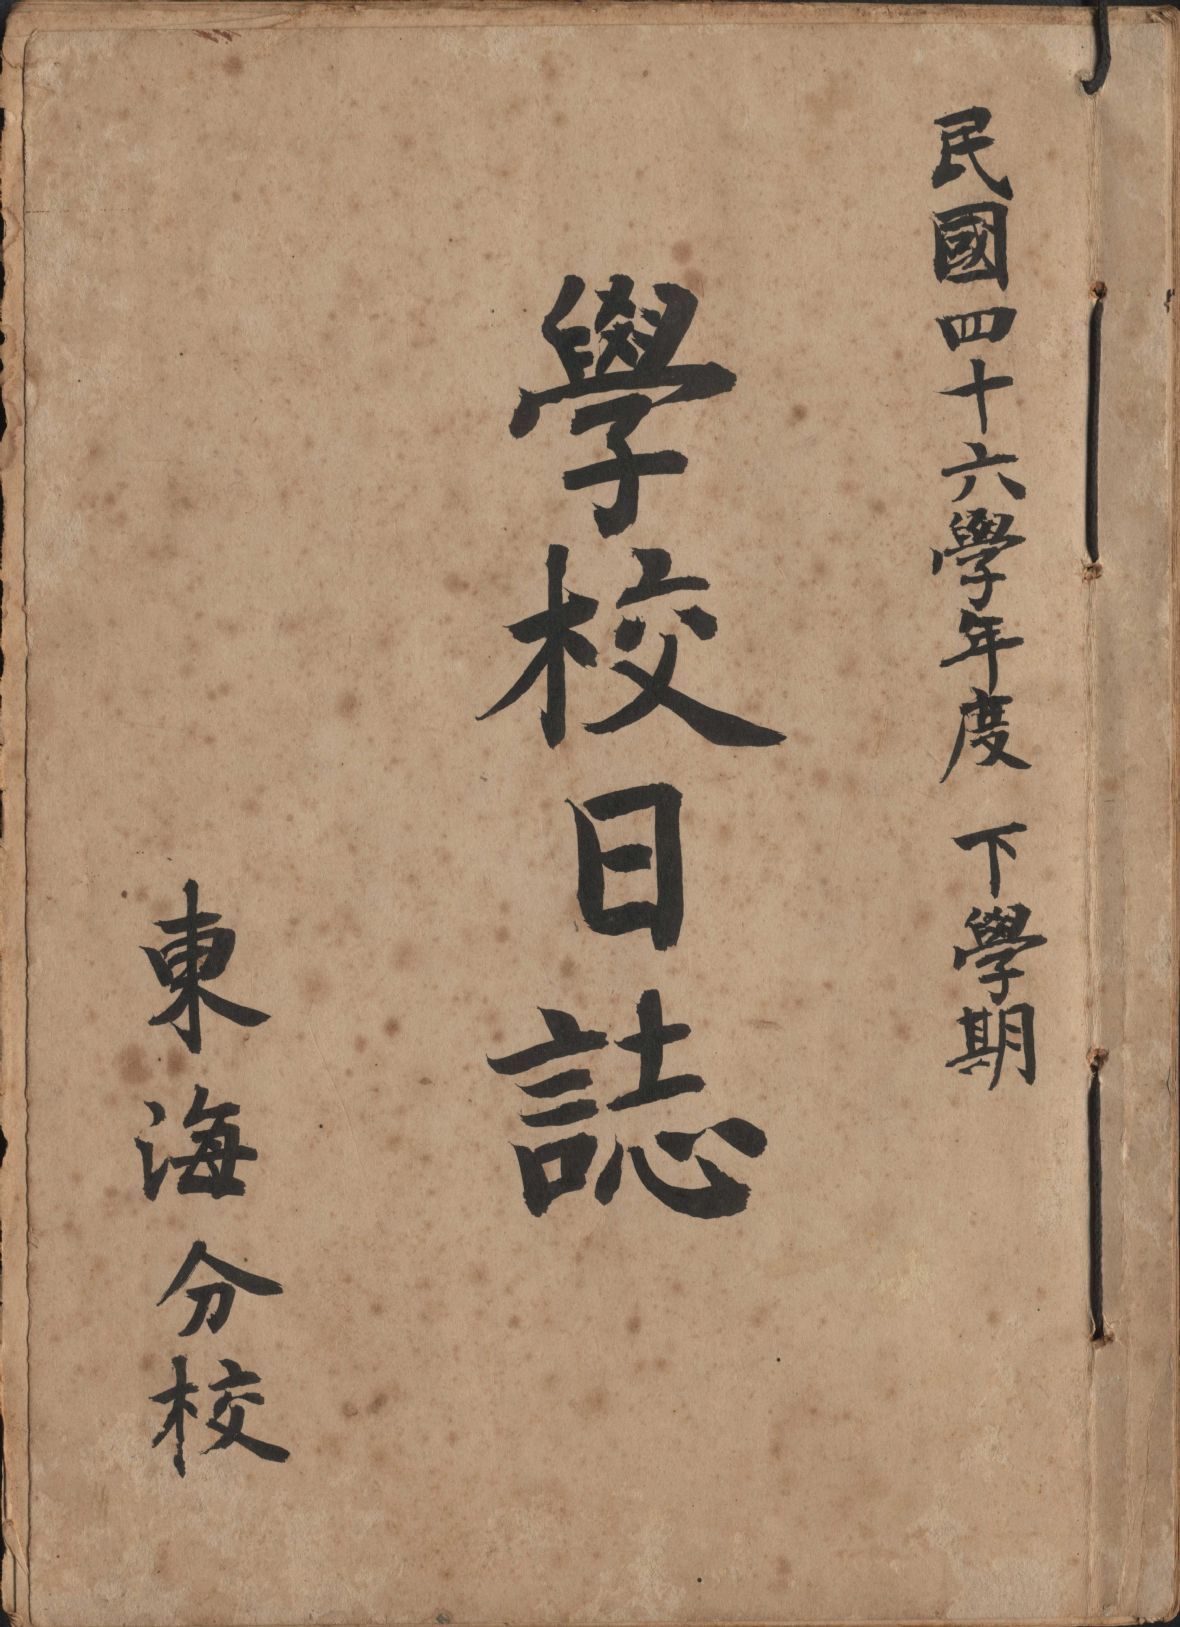 民國四十六學年度 下學期
學校日誌
東海分校